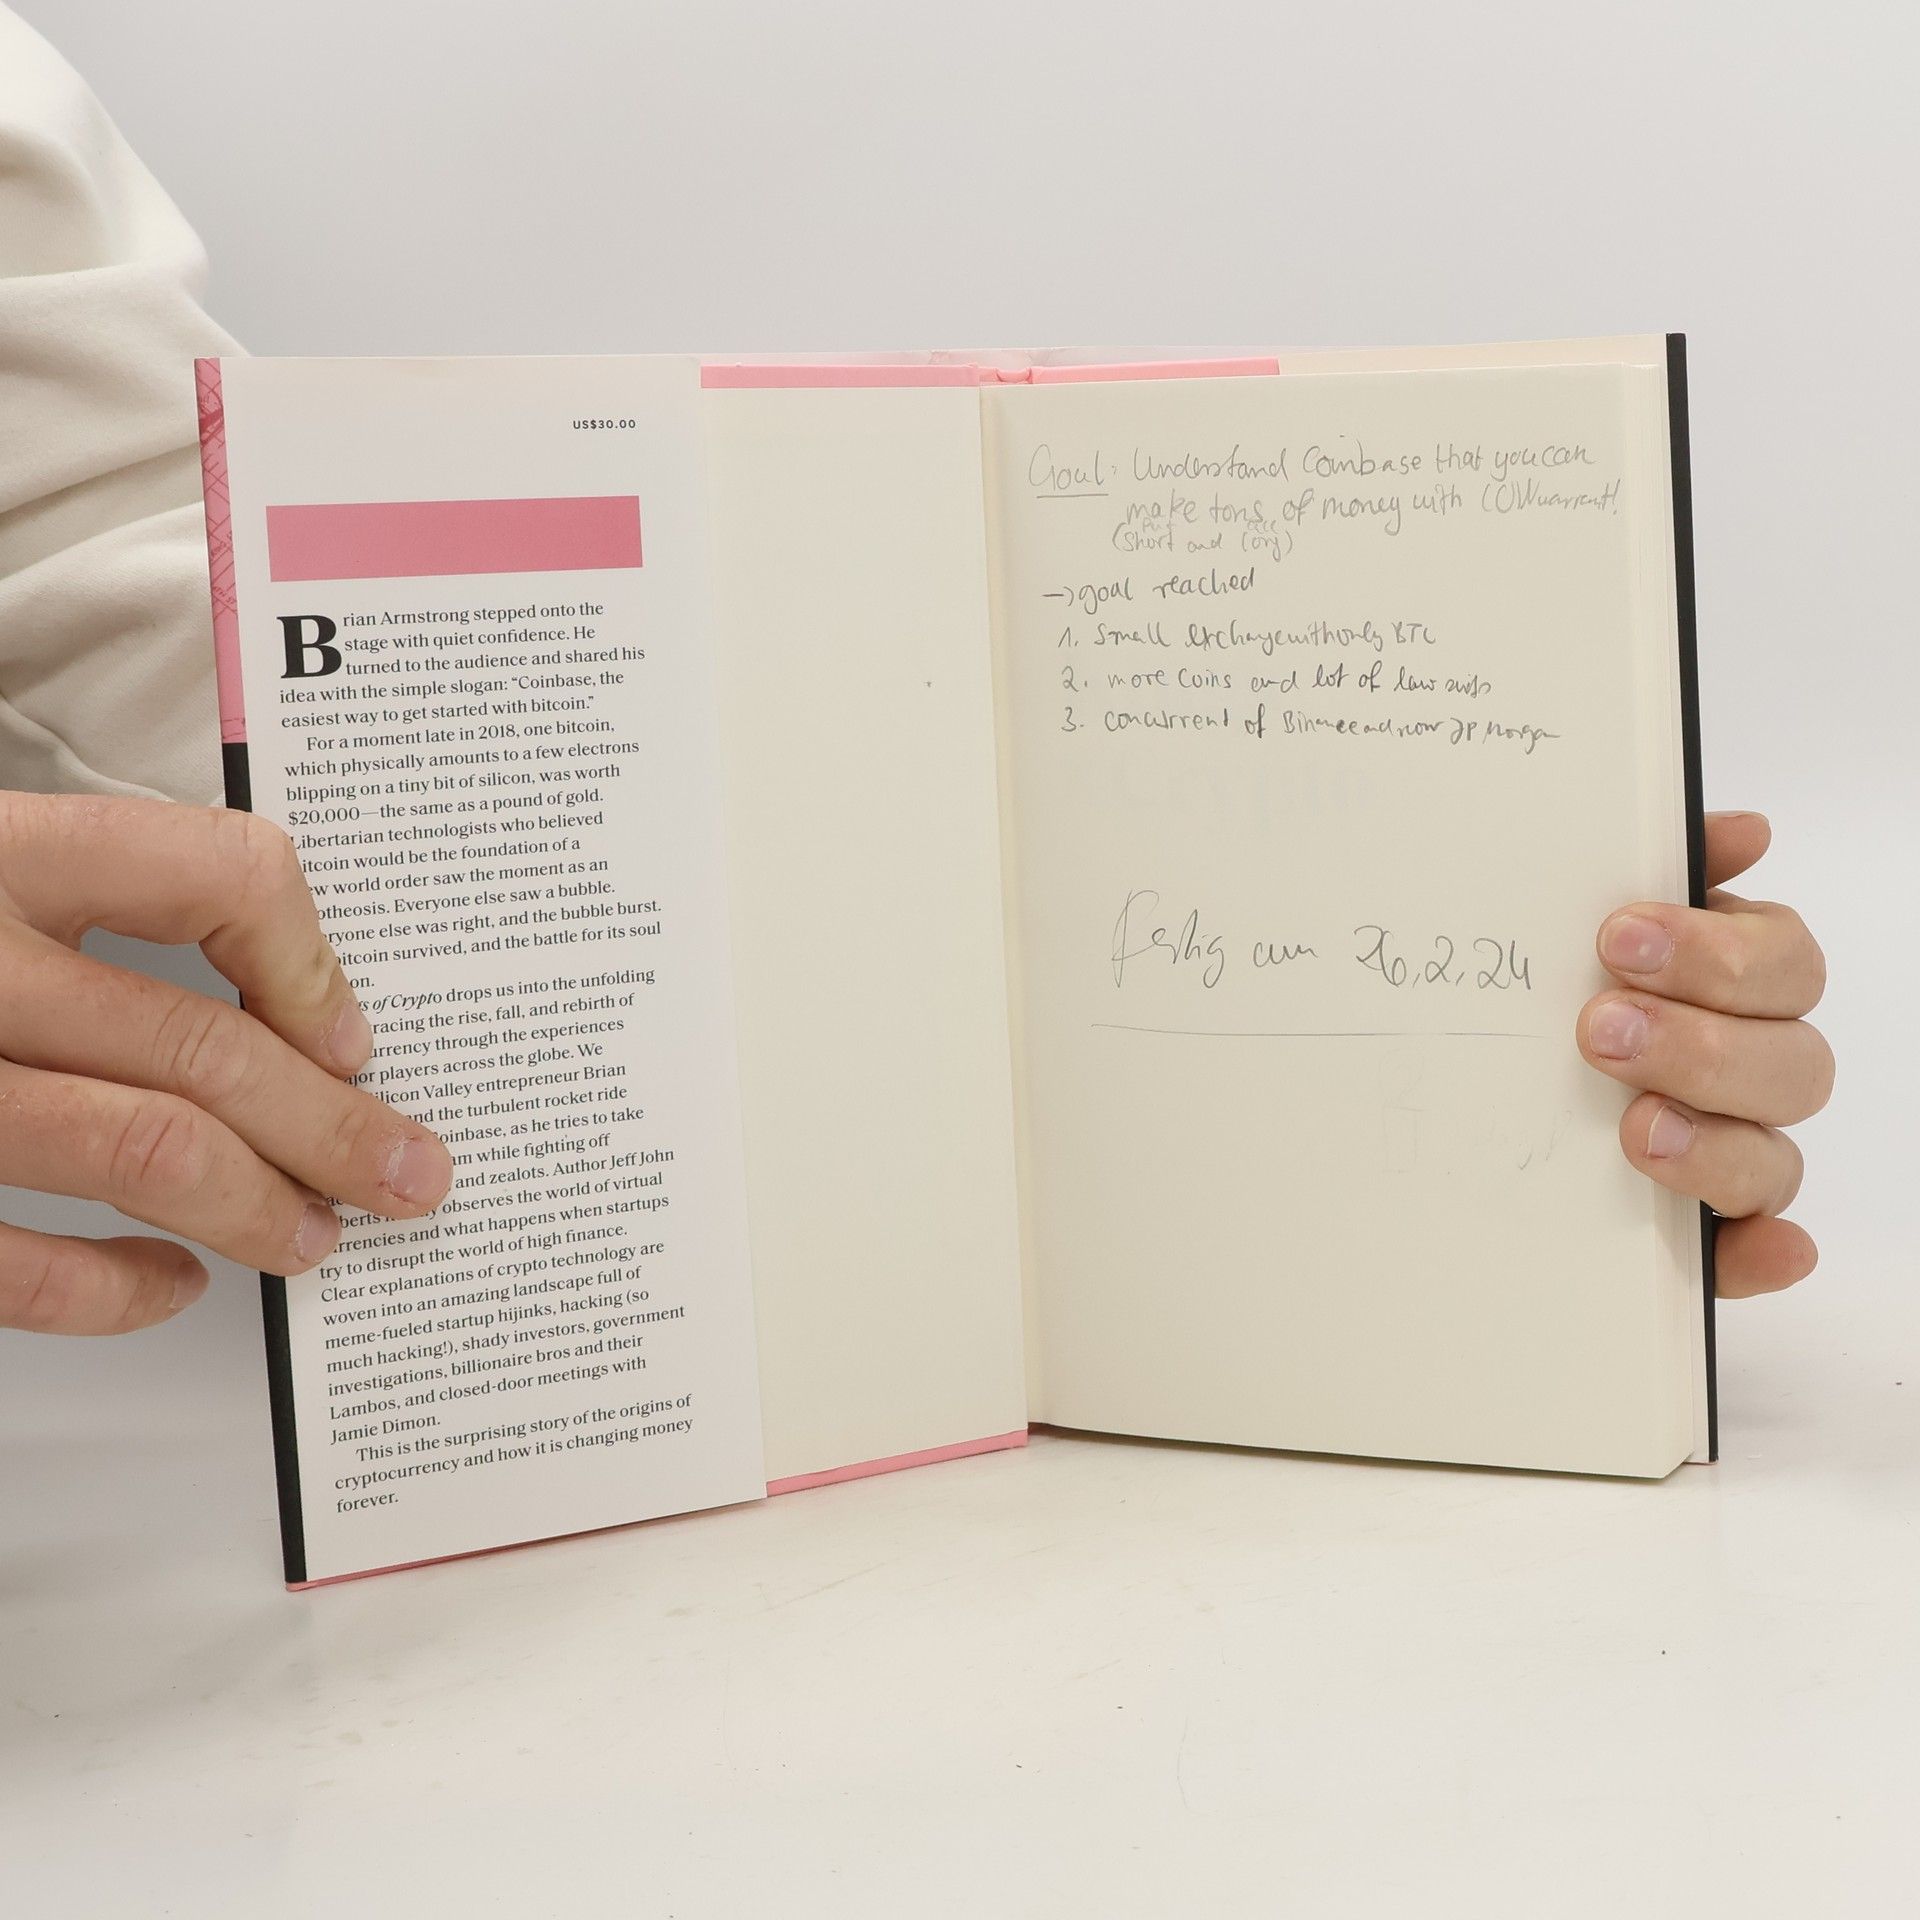 US$30.00
Brian Armstrong stepped onto the
stage with quiet confidence. He
turned to the audience and shared his
idea with the simple slogan: “Coinbase, the
easiest way to get started with bitcoin.”
For a moment late in 2018, one bitcoin,
which physically amounts to a few electrons
blipping on a tiny bit of silicon, was worth
$20,000—the same as a pound of gold.
Libertarian technologists who believed
itcoin would be the foundation of a
ew world order saw the moment as an
otheosis. Everyone else saw a bubble.
ryone else was right, and the bubble burst.
itcoin survived, and the battle for its soul
on.
gs of Crypto drops us into the unfolding
racing the rise, fall, and rebirth of
urrency through the experiences
ajor players across the globe. We
ilicon Valley entrepreneur Brian
and the turbulent rocket ride
oinbase, as he tries to take
am while fighting off
and zealots. Author Jeff John
berts observes the world of virtual
rrencies and what happens when startups
try to disrupt the world of high finance.
Clear explanations of crypto technology are
woven into an amazing landscape full of
meme-fueled startup hijinks, hacking (so
much hacking!), shady investors, government
investigations, billionaire bros and their
Lambos, and closed-door meetings with
Jamie Dimon.
This is the surprising story of the origins of
cryptocurrency and how it is changing money
forever.
Goal: Understand Coinbase that you can
make tons of money with
Put
(Short and long)
→ goal reached
1. Small exchange with only BTC
2. more Coins and lot of law suits
3. concurrent of Binance and now JP Morgan
fertig am 26.2.24